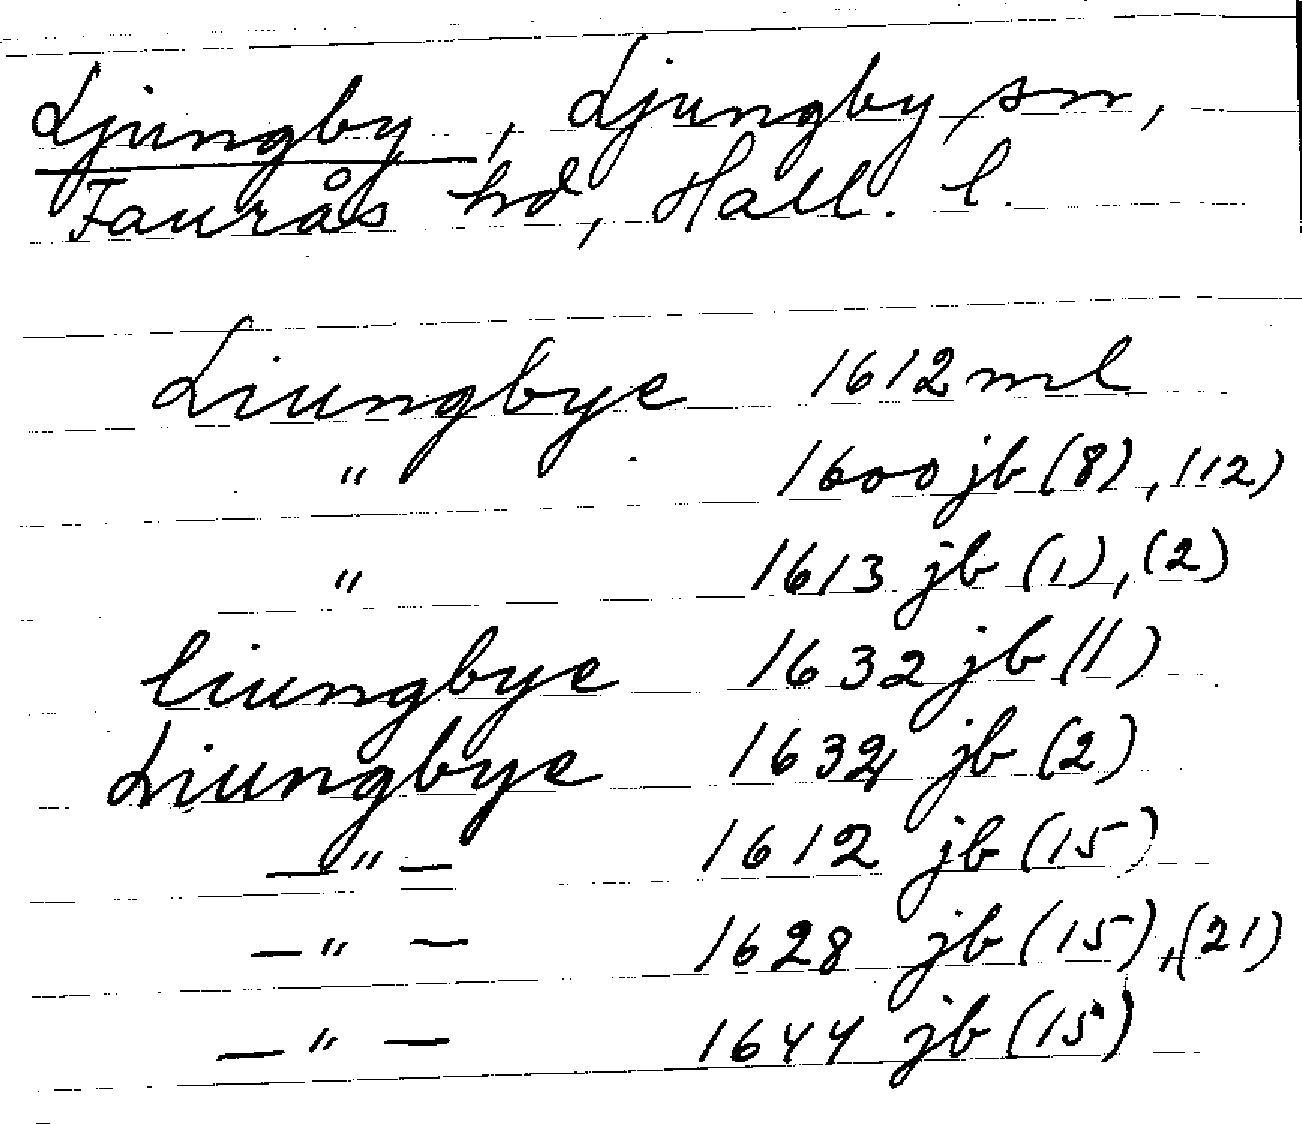 Ljungby, Ljungby sn,
Faurås hd, Hall. l.
Liungbye 1612 ml
" 1600 jb (8), 112)
" 1613 jb (1), (2)
liungbye 1632 jb (1)
Liungbye 1632 jb (2)
—"— 1612 jb (15)
—"— 1628 jb (15), (21)
—"— 1644 jb (15)